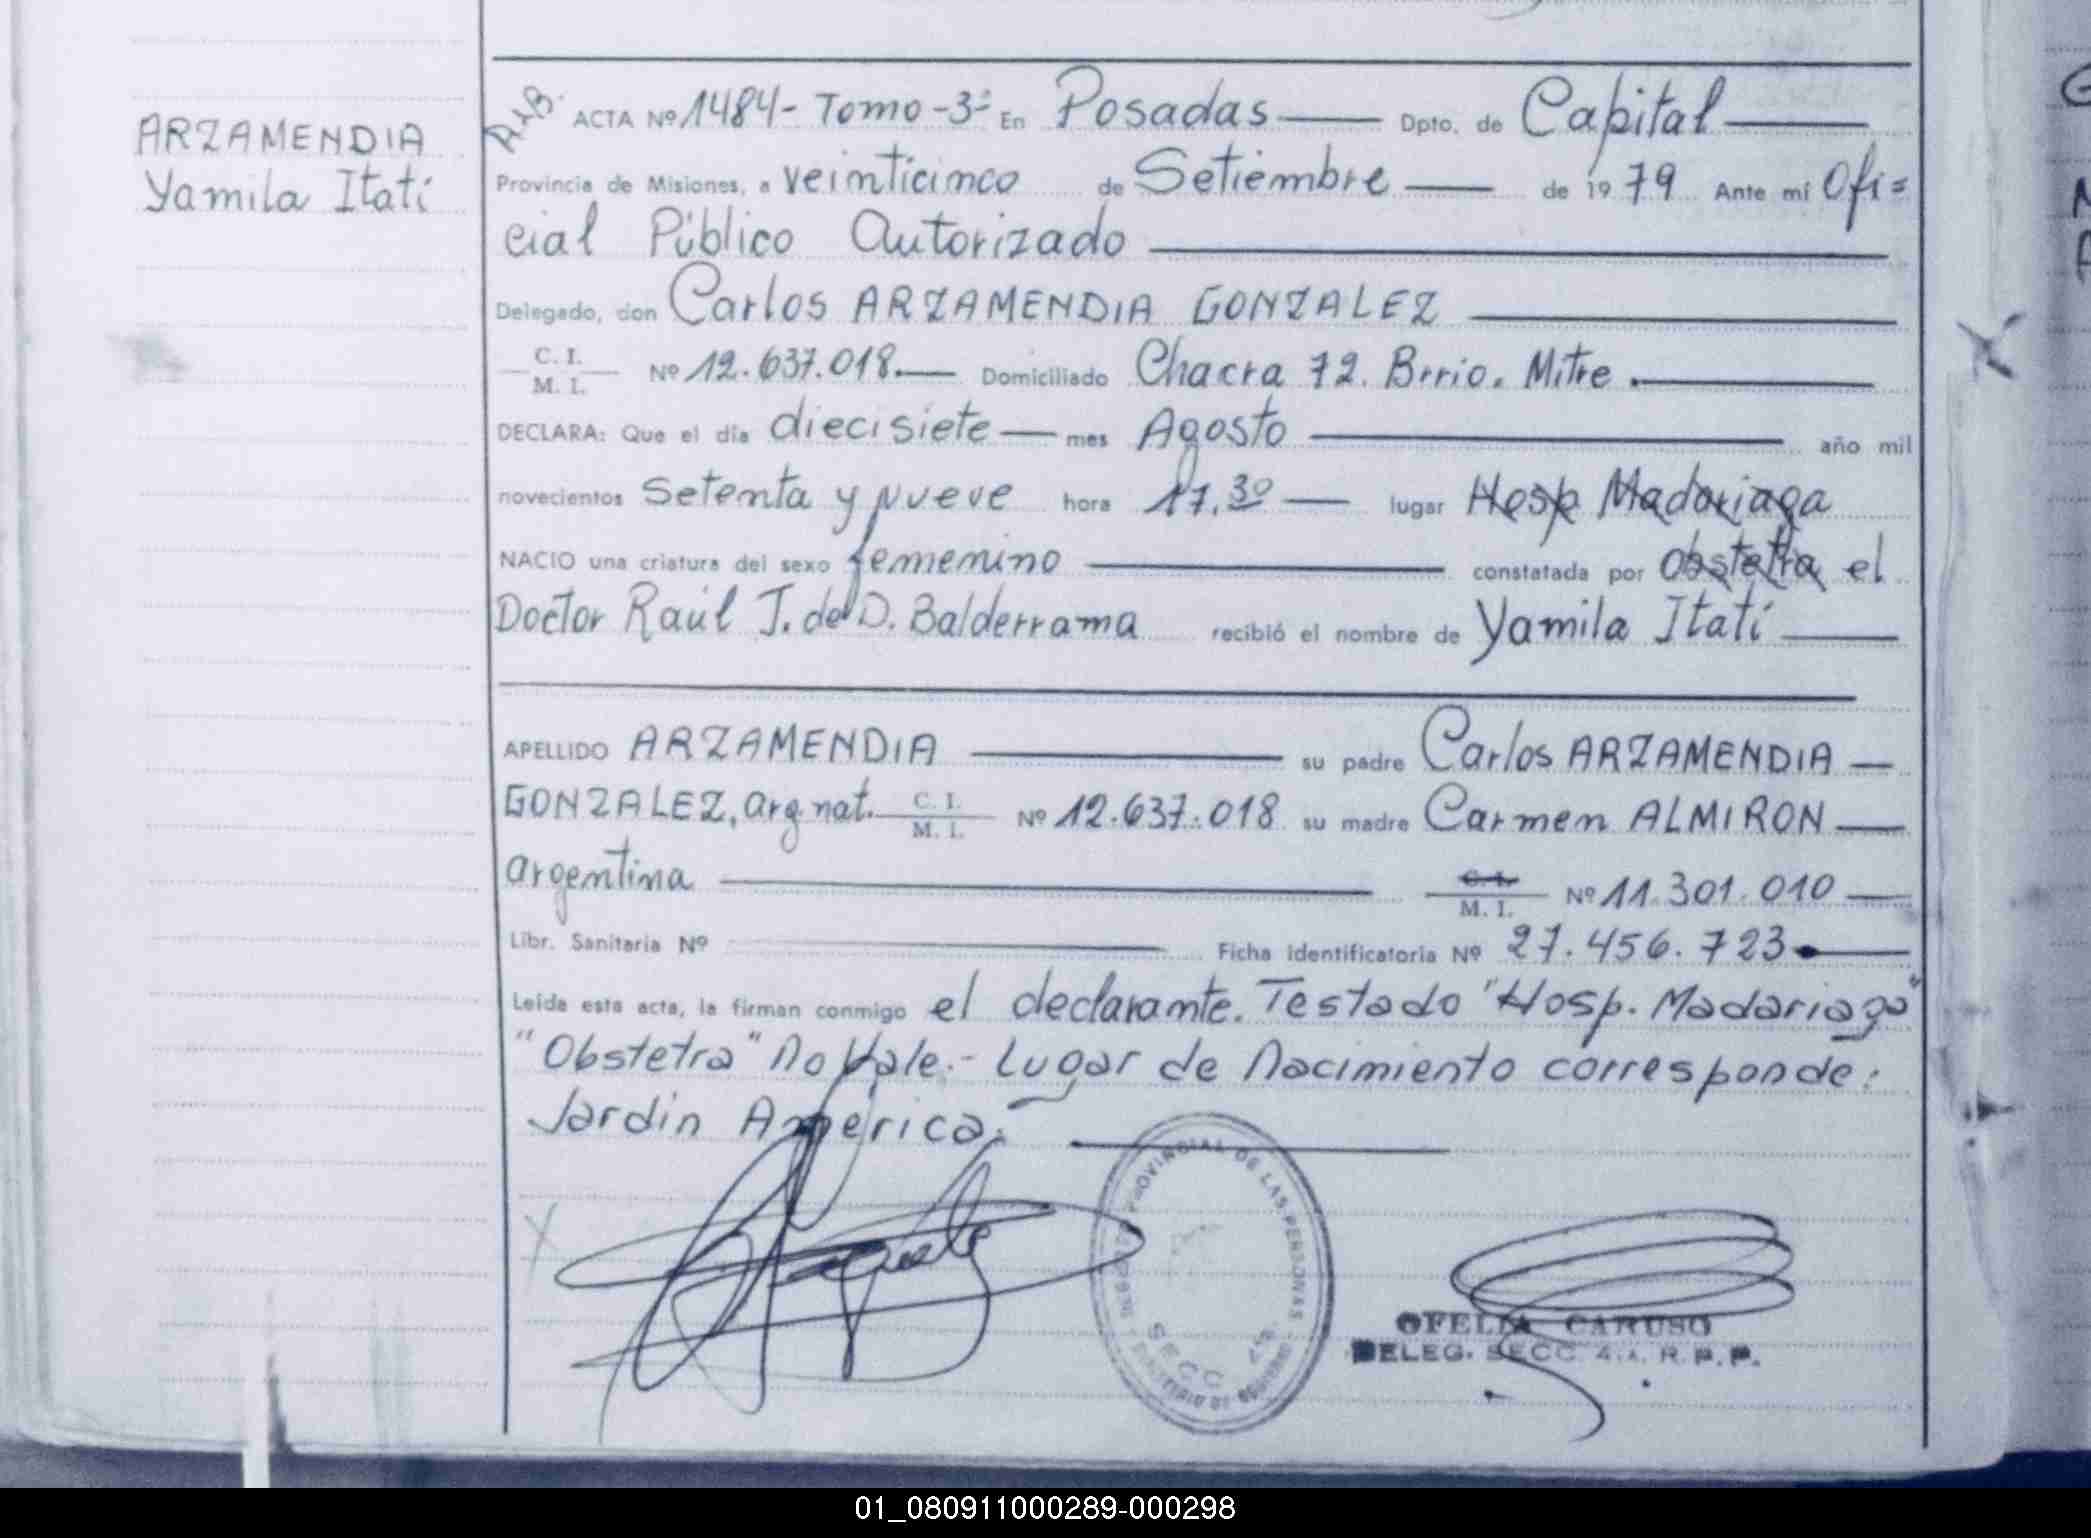 ARZAMENDIA
Yamila Itatí
ACTA Nº 1484 - Tomo - 3º En Posadas Dpto. de Capital
Provincia de Misiones, a veinticinco de Setiembre de 1979 Ante mí Ofi=
cial Público Autorizado
Delegado, don Carlos ARZAMENDIA GONZALEZ
C. I.
M. I. Nº 12.637.018. Domiciliado Chacra 72. Brrio. Mitre.
DECLARA: Que el día diecisiete mes Agosto año mil
novecientos setenta y nueve hora 17,30 lugar Hosp Madariaga
NACIO una criatura del sexo femenino constatada por obstetra el
Doctor Raúl J. de D. Balderrama recibió el nombre de Yamila Itatí
APELLIDO ARZAMENDIA su padre Carlos ARZAMENDIA
GONZALEZ, arg. nat. C. I. M. I. Nº 12.637.018 su madre Carmen ALMIRON
argentina C. I. M. I. Nº 11.301.010
Libr. Sanitaria Nº Ficha identificatoria Nº 27.456.723
Leída esta acta, la firman conmigo el declarante. Testado "Hosp. Madariaga"
"Obstetra" No Vale.- Lugar de Nacimiento corresponde:
Jardín América.-
PROVINCIAL DE LAS PERSONAS
SECC
OFELIA CARUSO
DELEG. SECC. 4.a. R.P.P.
01_080911000289-000298